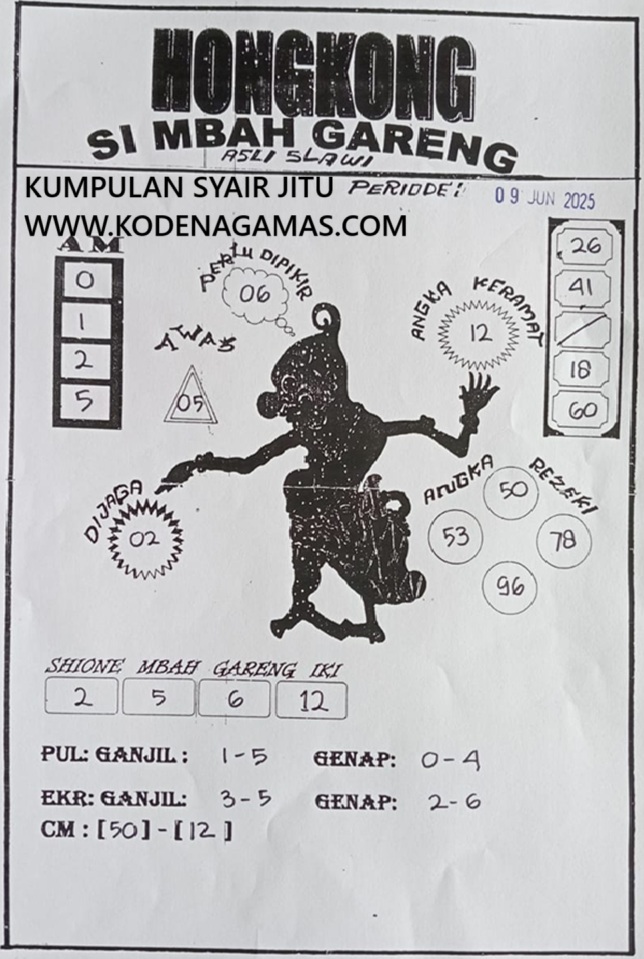 HONGKONG
SI MBAH GARENG
ASLI SLAWI
KUMPULAN SYAIR JITU
PERIODE: 09 JUN 2025
WWW.KODENAGAMAS.COM
AM
0
1
2
5
PERLU DIPIKIR
06
AWAS
05
ANGKA KERAMAT
12
26
41
/
18
60
DIJAGA
02
ANGKA REZEKI
50
53
78
96
SHIONE MBAH GARENG IKI
2 5 6 12
PUL: GANJIL: 1-5 GENAP: 0-4
EKR: GANJIL: 3-5 GENAP: 2-6
CM : [50] - [12]